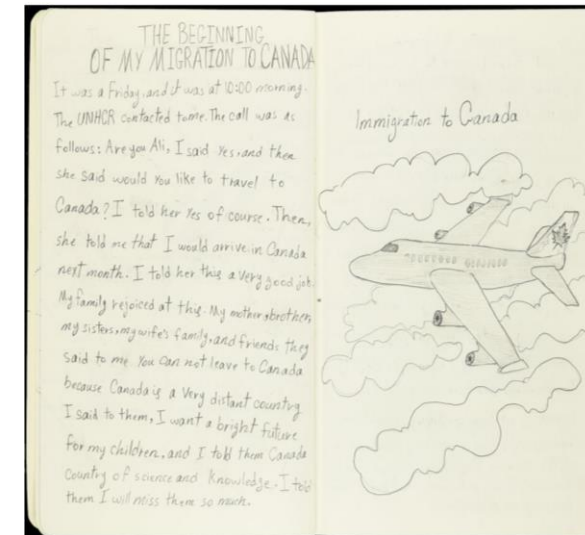 THE BEGINNING
OF MY MIGRATION TO CANADA
It was a Friday, and it was at 10:00 morning.
The UNHCR contacted to me. The call was as
follows: Are you Ali, I said Yes, and then
she said would You like to travel to
Canada? I told her Yes of course. Then,
she told me that I would arrive in Canada
next month. I told her this a very good job.
My family rejoiced at this. My mother, brother,
my sisters, my wife's family, and friends they
said to me You can not leave to Canada
because Canada is a Very distant country
I said to them, I want a bright future
for my children, and I told them Canada
Country of science and Knowledge. I told
them I will miss them so much.
Immigration to Canada